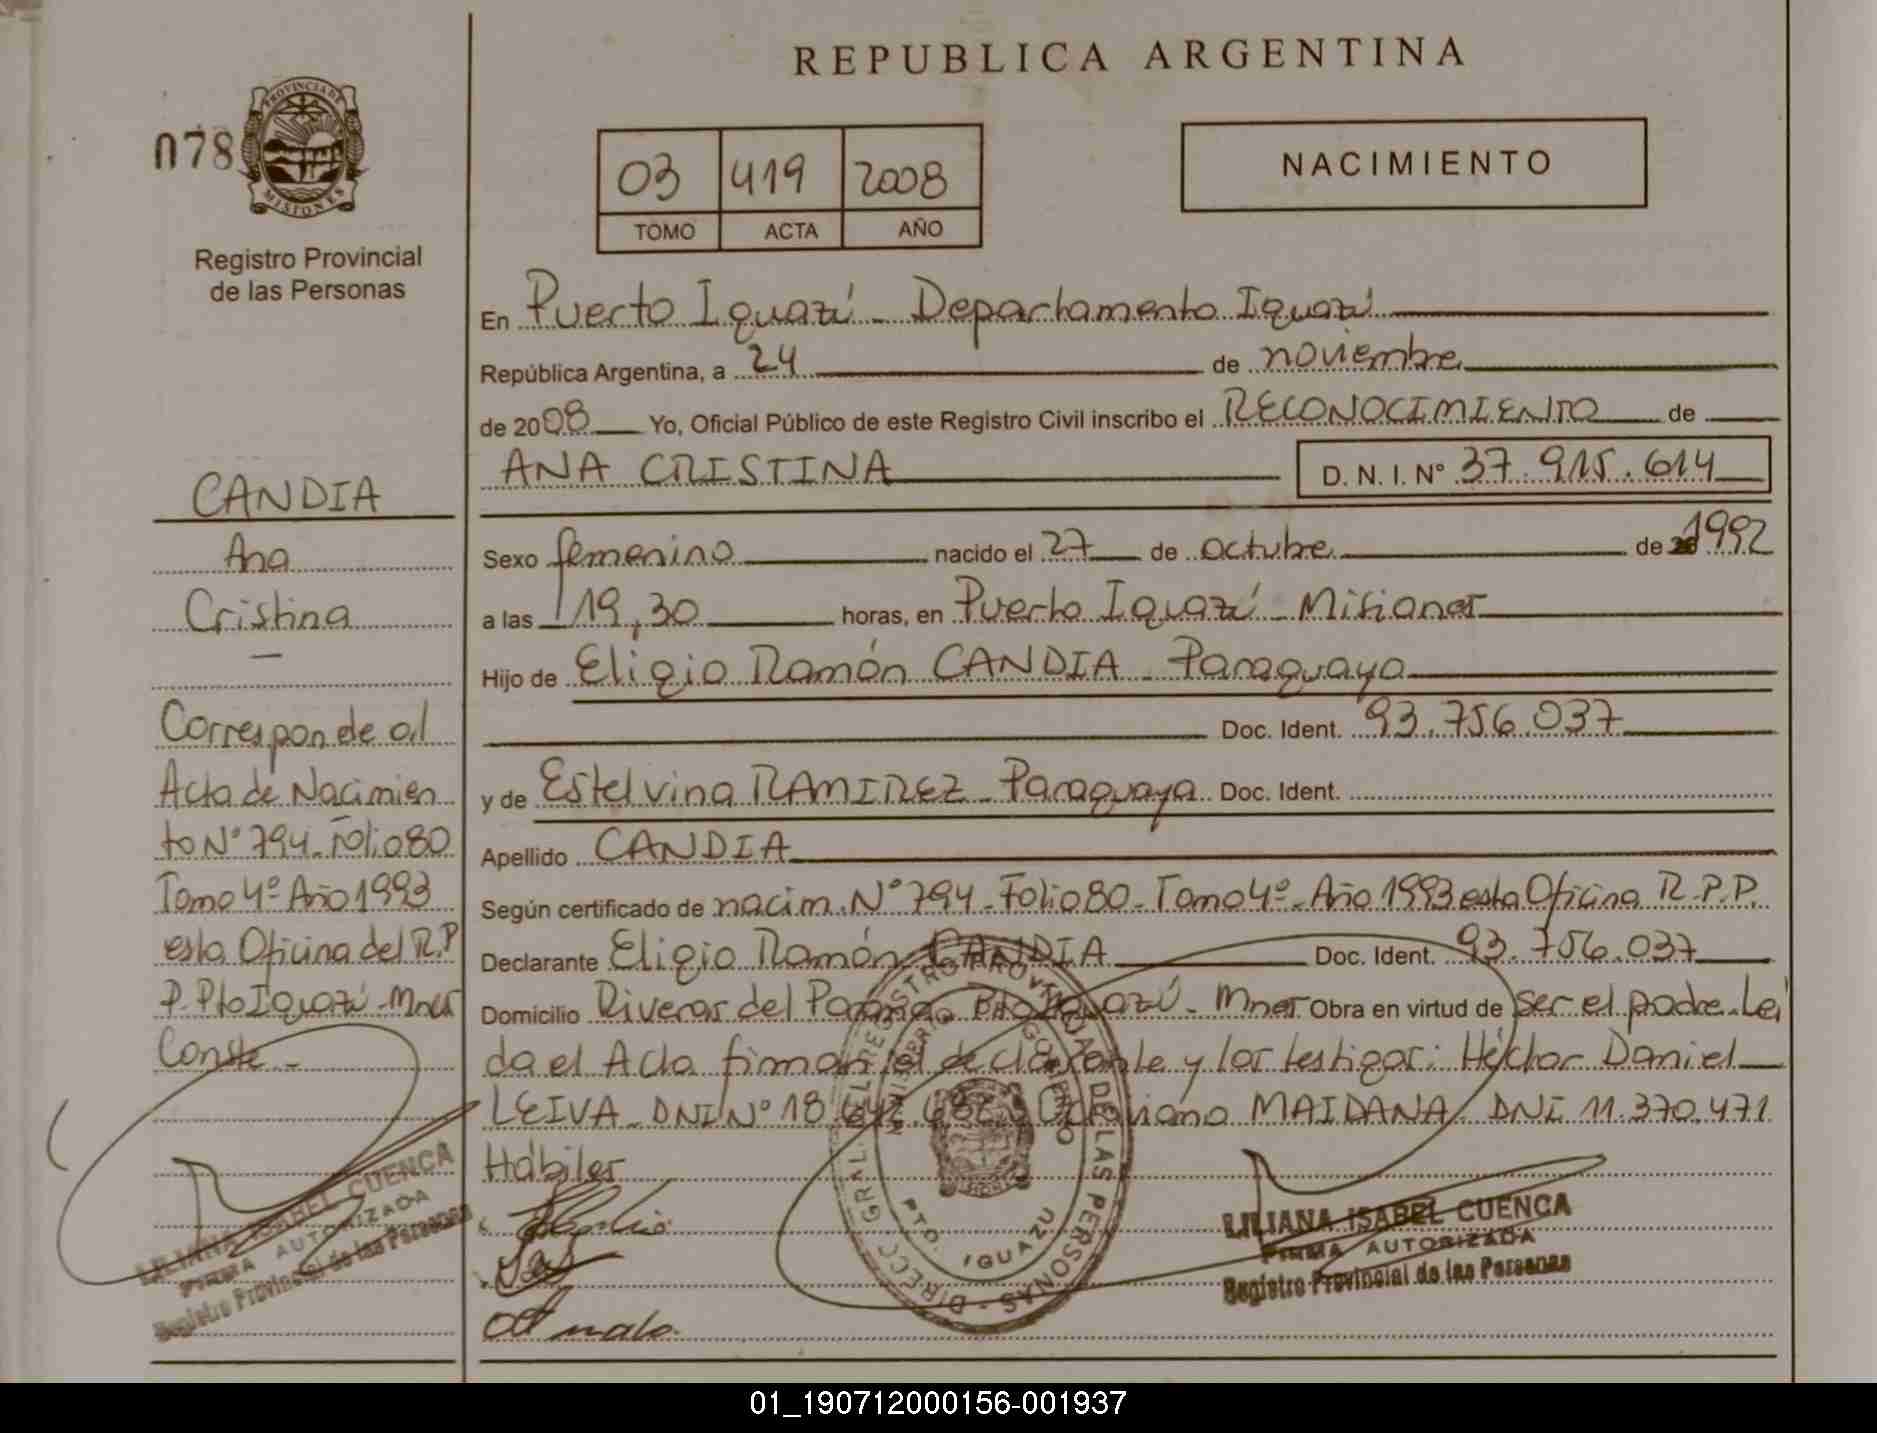 REPUBLICA ARGENTINA
078
PROVINCIA DE
MISIONES
Registro Provincial
de las Personas
03 419 2008
TOMO ACTA AÑO
NACIMIENTO
En Puerto Iguazú - Departamento Iguazú
República Argentina, a 24 de noviembre
de 2008 Yo, Oficial Público de este Registro Civil inscribo el RECONOCIMIENTO de
ANA CRISTINA D. N. I. Nº 37.915.614
Sexo femenino nacido el 27 de octubre de 1992
a las 19,30 horas, en Puerto Iguazú - Misiones
Hijo de Eligio Ramón CANDIA - Paraguayo
Doc. Ident. 93.756.037
y de Estelvina RAMIREZ - Paraguaya Doc. Ident.
Apellido CANDIA
Según certificado de nacim. Nº 794 - Folio 80 - Tomo 4º - Año 1993 esta Oficina R.P.P.
Declarante Eligio Ramón CANDIA Doc. Ident. 93.756.037
Domicilio Riveras del Paraná - Pto Iguazú - Mnes Obra en virtud de ser el padre. Lei
da el Acta firman el declarante y los testigos: Héctor Daniel
LEIVA - DNI Nº 18. MAIDANA - DNI 11.370.471
Hábiles
CANDIA
Ana
Cristina
-
Corresponde al
Acta de Nacimien
to Nº 794 - Folio 80
Tomo 4º Año 1993
esta Oficina del R.P
P. Pto Iguazú - Mnes
Conste -
LILIANA ISABEL CUENCA
FIRMA AUTORIZADA
Registro Provincial de las Personas
DIRECC. GRAL. DEL REGISTRO PROVINCIAL DE LAS PERSONAS
PTO. IGUAZU
LILIANA ISABEL CUENCA
FIRMA AUTORIZADA
Registro Provincial de las Personas
01_190712000156-001937